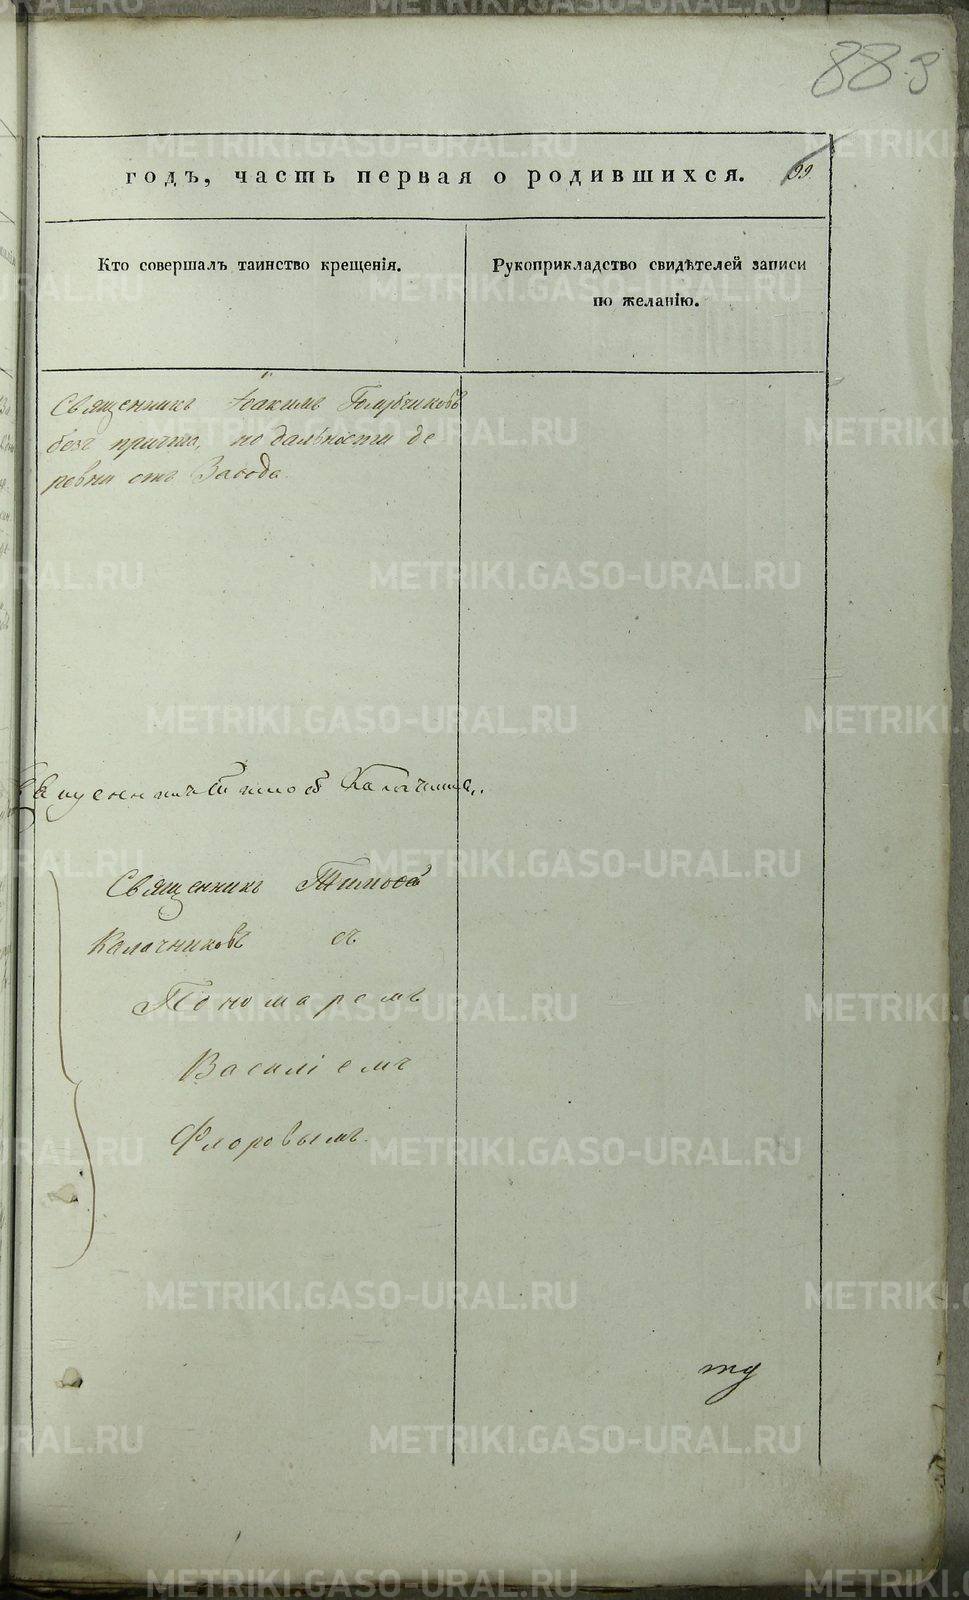 883
годъ, часть первая о родившихся.
99
Кто совершалъ таинство крещенія.
Рукоприкладство свидѣтелей записи
по желанію.
Священникъ Іоакимъ Голубчиковъ
безъ причта, по дальности де
ревни отъ Завода.
Священникъ Тимоѳ Калачник..
Священникъ Тимоѳей
Калачниковъ съ
Пономаремъ
Василіемъ
Флоровымъ.
METRIKI.GASO-URAL.RU